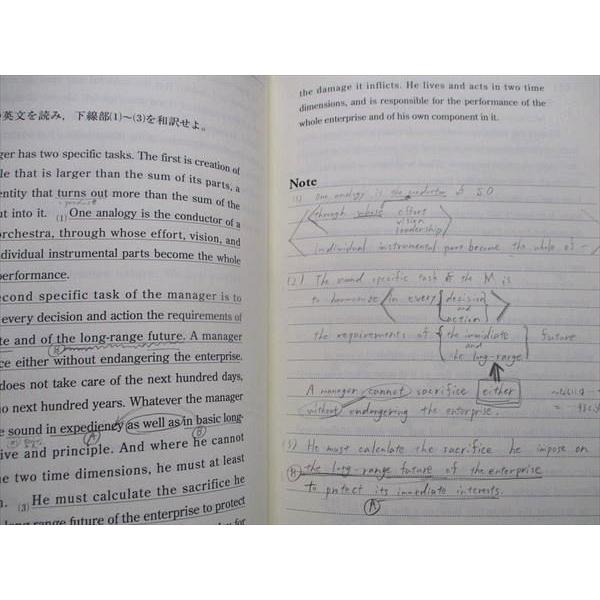 英文を読み，下線部(1)～(3)を和訳せよ。
ger has two specific tasks. The first is creation of
le that is larger than the sum of its parts, a
entity that turns out more than the sum of the
ut into it. (1)One analogy is the conductor of a
orchestra, through whose effort, vision, and
dividual instrumental parts become the whole
performance.
econd specific task of the manager is to
every decision and action the requirements of
te and of the long-range future. A manager
B
ce either without endangering the enterprise.
does not take care of the next hundred days,
no next hundred years. Whatever the manager
e sound in expediency as well as in basic long-
A B
ive and principle. And where he cannot
e two time dimensions, he must at least
n. (3)He must calculate the sacrifice he
long range future of the enterprise to protect
the damage it inflicts. He lives and acts in two time
dimensions, and is responsible for the performance of the
whole enterprise and of his own component in it.
Note
(1) One analogy is the conductor of SO
through whose effort
vision
leadership
individual instrumental parts become the whole of
(2) The second specific task of the M is
to harmonize in every decision
and
action
the requirements of the immediate future
and
the long-range
A manager cannot sacrifice either
without endangering the enterprise.
(3) He must calculate the sacrifice he impose on
B the long-range future of the enterprise
to protect its immediate interests.
A